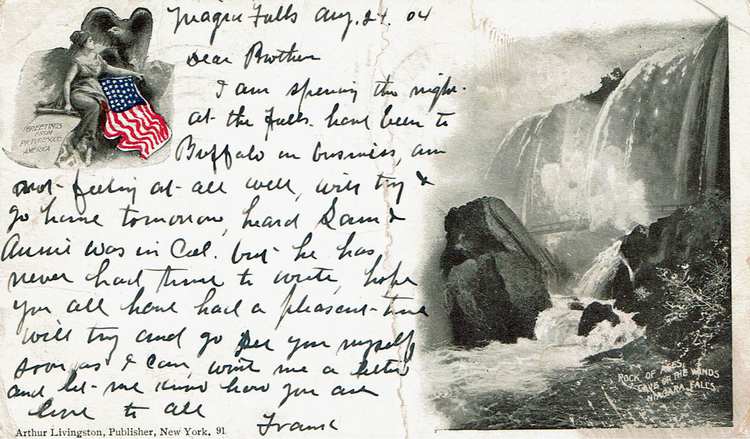 Niagra Falls Aug. 24, 04
Dear Brother
I am spening the night
at the Falls. have been to
Buffalo on business, am
not feeling at all well, will try &
go home tomorrow, heard Sam &
Annie was in Col. but he has
never had time to write, hope
you all have had a pleasent time
will try and go see you myself
soon as I can, write me a letter
and let me know how you are
love to all
Frank
GREETINGS
FROM
PICTURESQUE
AMERICA
ROCK OF AGES,
CAVE OF THE WINDS
NIAGARA FALLS.
Arthur Livingston, Publisher, New York. 91